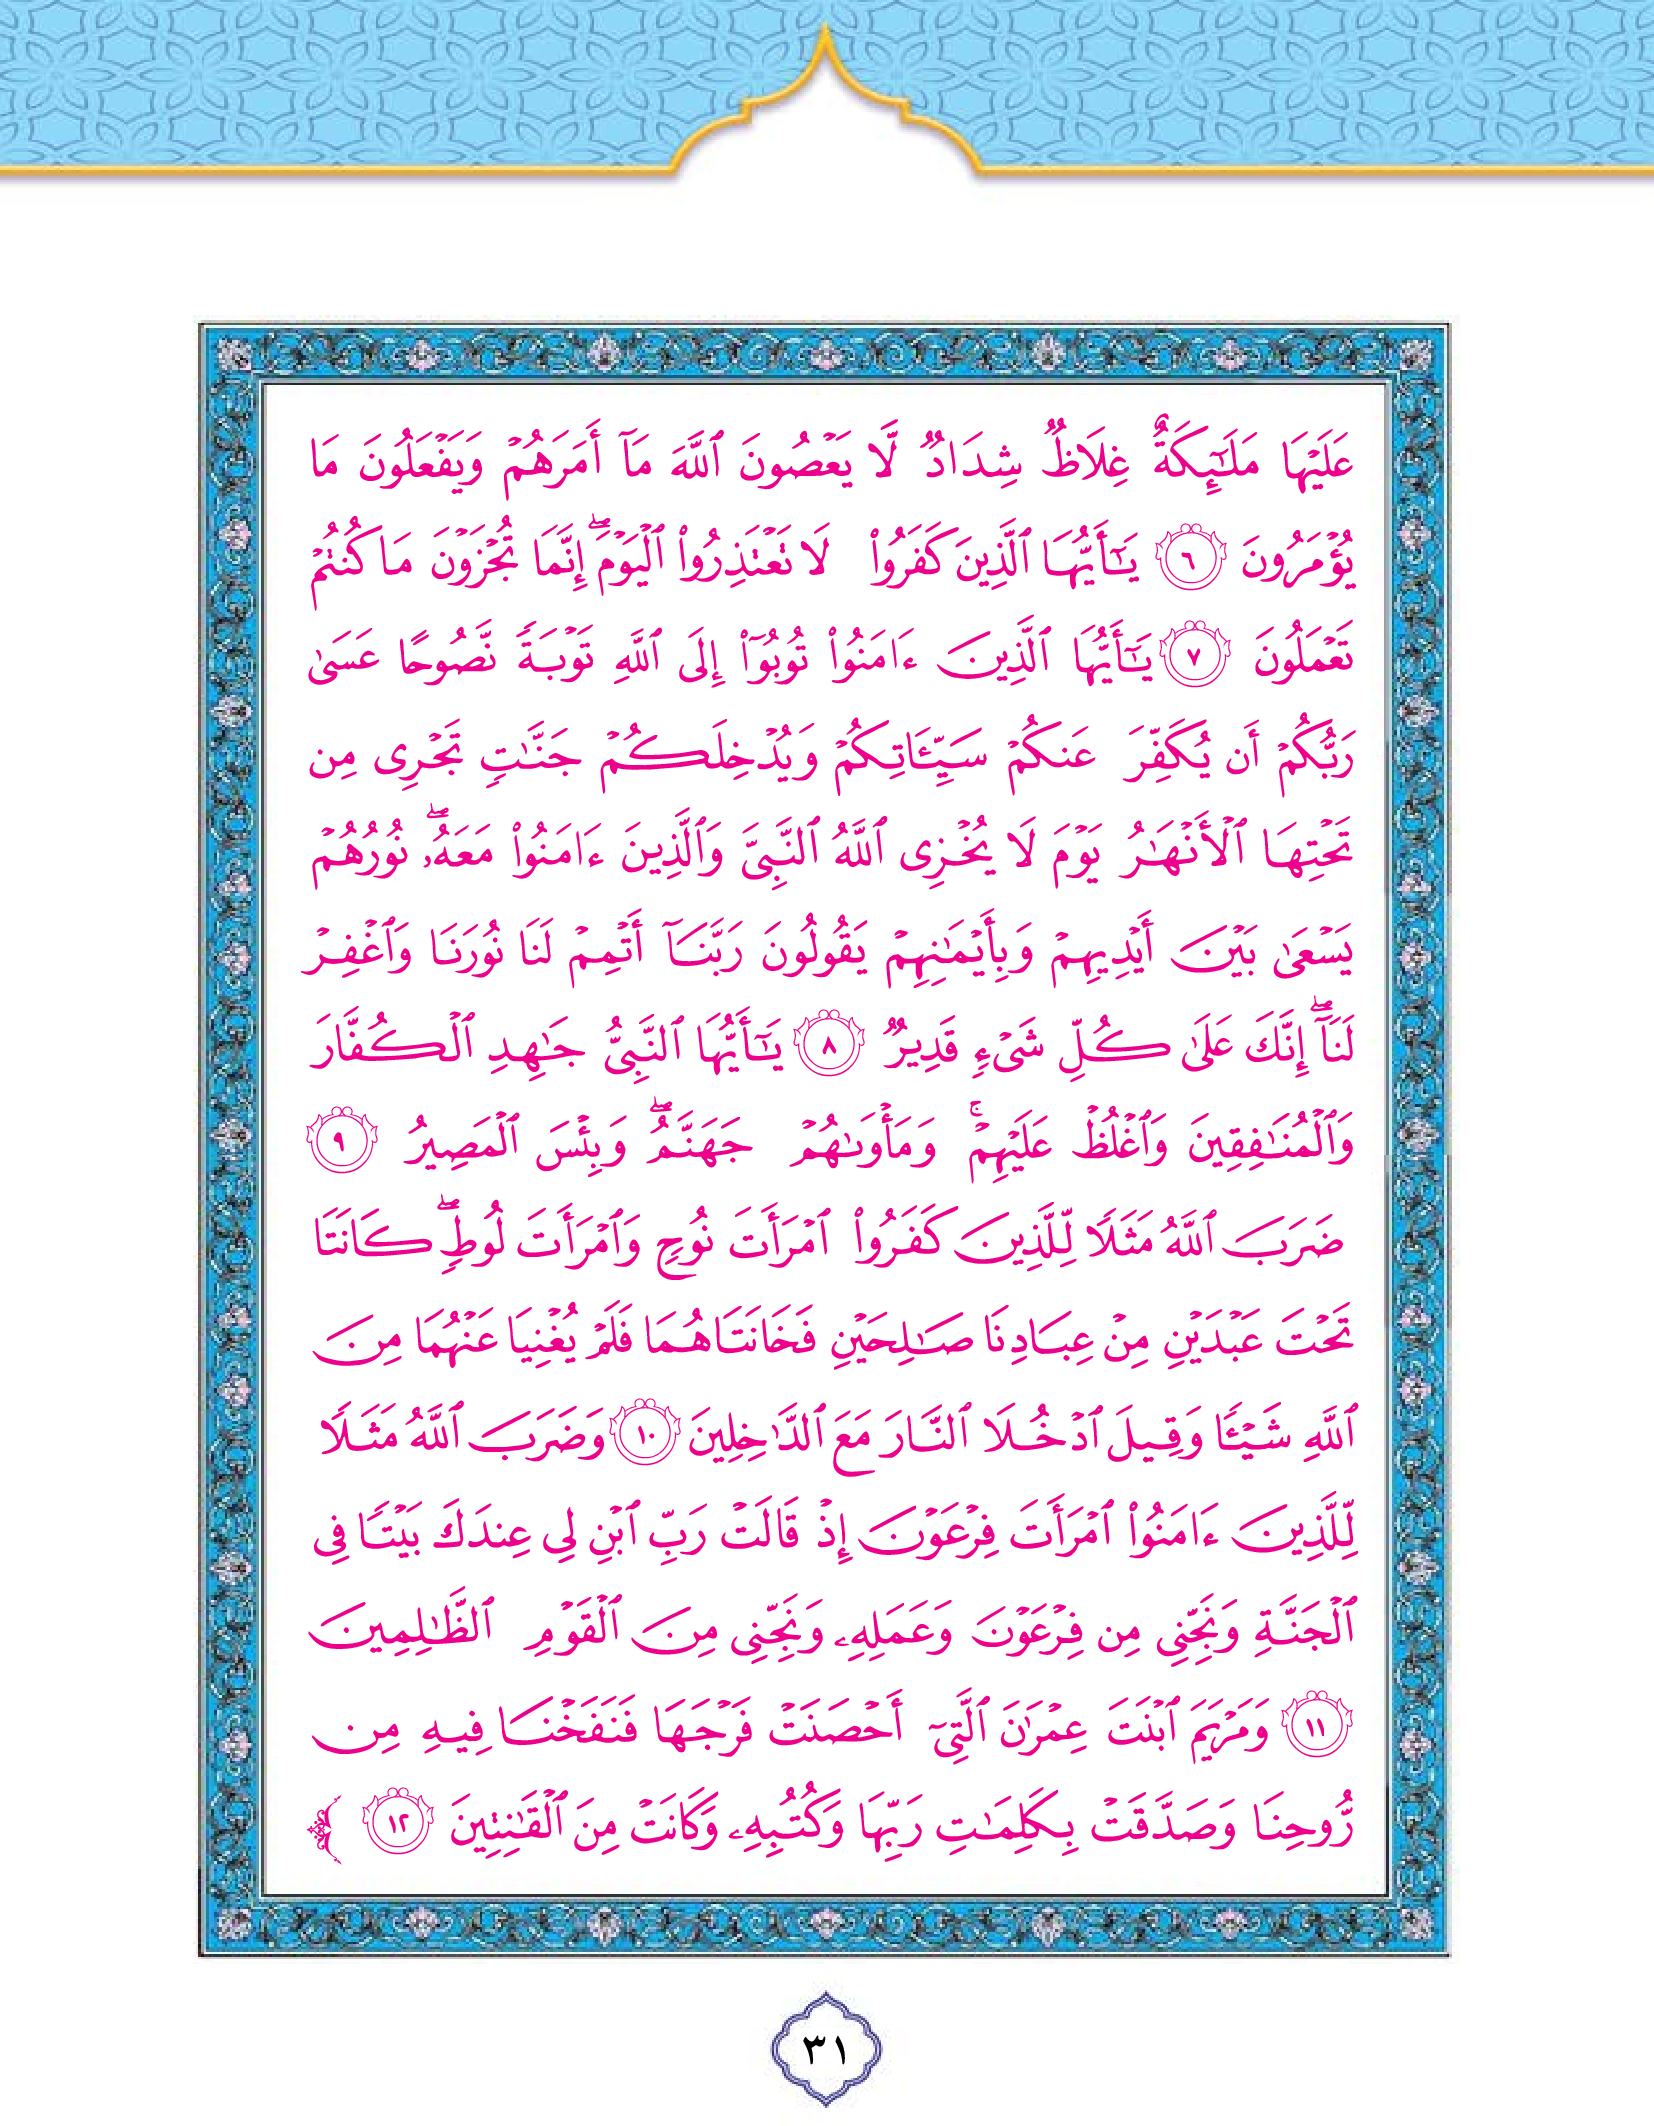 عَلَيْهَا مَلَٰٓئِكَةٌ غِلَاظٌ شِدَادٌ لَّا يَعْصُونَ ٱللَّهَ مَآ أَمَرَهُمْ وَيَفْعَلُونَ مَا
يُؤْمَرُونَ ٦ يَٰٓأَيُّهَا ٱلَّذِينَ كَفَرُوا۟ لَا تَعْتَذِرُوا۟ ٱلْيَوْمَ ۖ إِنَّمَا تُجْزَوْنَ مَا كُنتُمْ
تَعْمَلُونَ ٧ يَٰٓأَيُّهَا ٱلَّذِينَ ءَامَنُوا۟ تُوبُوٓا۟ إِلَى ٱللَّهِ تَوْبَةً نَّصُوحًا عَسَىٰ
رَبُّكُمْ أَن يُكَفِّرَ عَنكُمْ سَيِّـَٔاتِكُمْ وَيُدْخِلَكُمْ جَنَّٰتٍ تَجْرِى مِن
تَحْتِهَا ٱلْأَنْهَٰرُ يَوْمَ لَا يُخْزِى ٱللَّهُ ٱلنَّبِىَّ وَٱلَّذِينَ ءَامَنُوا۟ مَعَهُۥ ۖ نُورُهُمْ
يَسْعَىٰ بَيْنَ أَيْدِيهِمْ وَبِأَيْمَٰنِهِمْ يَقُولُونَ رَبَّنَآ أَتْمِمْ لَنَا نُورَنَا وَٱغْفِرْ
لَنَآ ۖ إِنَّكَ عَلَىٰ كُلِّ شَىْءٍ قَدِيرٌ ٨ يَٰٓأَيُّهَا ٱلنَّبِىُّ جَٰهِدِ ٱلْكُفَّارَ
وَٱلْمُنَٰفِقِينَ وَٱغْلُظْ عَلَيْهِمْ ۚ وَمَأْوَىٰهُمْ جَهَنَّمُ ۖ وَبِئْسَ ٱلْمَصِيرُ ٩
ضَرَبَ ٱللَّهُ مَثَلًا لِّلَّذِينَ كَفَرُوا۟ ٱمْرَأَتَ نُوحٍ وَٱمْرَأَتَ لُوطٍ ۖ كَانَتَا
تَحْتَ عَبْدَيْنِ مِنْ عِبَادِنَا صَٰلِحَيْنِ فَخَانَتَاهُمَا فَلَمْ يُغْنِيَا عَنْهُمَا مِنَ
ٱللَّهِ شَيْـًٔا وَقِيلَ ٱدْخُلَا ٱلنَّارَ مَعَ ٱلدَّٰخِلِينَ ١٠ وَضَرَبَ ٱللَّهُ مَثَلًا
لِّلَّذِينَ ءَامَنُوا۟ ٱمْرَأَتَ فِرْعَوْنَ إِذْ قَالَتْ رَبِّ ٱبْنِ لِى عِندَكَ بَيْتًا فِى
ٱلْجَنَّةِ وَنَجِّنِى مِن فِرْعَوْنَ وَعَمَلِهِۦ وَنَجِّنِى مِنَ ٱلْقَوْمِ ٱلظَّٰلِمِينَ
١١ وَمَرْيَمَ ٱبْنَتَ عِمْرَٰنَ ٱلَّتِىٓ أَحْصَنَتْ فَرْجَهَا فَنَفَخْنَا فِيهِ مِن
رُّوحِنَا وَصَدَّقَتْ بِكَلِمَٰتِ رَبِّهَا وَكُتُبِهِۦ وَكَانَتْ مِنَ ٱلْقَٰنِتِينَ ١٢ ﴾
٣١